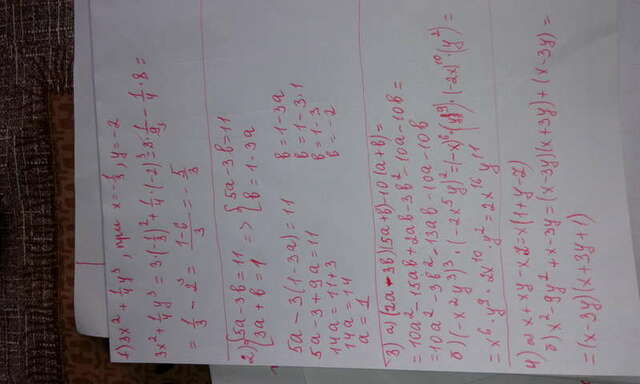 1) 3x² + 1/4 y³, при x = -1/3, y = -2
3x² + 1/4 y³ = 3(1/3)² + 1/4 · (-2)³ = 3 · 1/9 - 1/4 · 8 =
= 1/3 - 2 = (1-6)/3 = -5/3
2) {5a - 3b = 11 => {5a - 3b = 11
{3a + b = 1 {b = 1 - 3a
5a - 3(1 - 3a) = 11 b = 1 - 3a
5a - 3 + 9a = 11 b = 1 - 3 · 1
14a = 11 + 3 b = 1 - 3
14a = 14 b = -2
a = 1
3) а) (2a - 3b)(5a + b) - 10(a + b) =
= 10a² - 15ab + 2ab - 3b² - 10a - 10b =
= 10a² - 3b² - 13ab - 10a - 10b
б) (-x²y³)³ · (-2x⁵y)² = (-x)⁶ · (y⁹) · (-2x)¹⁰ (y²) =
= x⁶ · y⁹ · 2x¹⁰ · y² = 2x¹⁶ y¹¹
4) а) x + xy - xz = x(1 + y - z)
б) x² - 9y² + x - 3y = (x - 3y)(x + 3y) + (x - 3y) =
= (x - 3y)(x + 3y + 1)